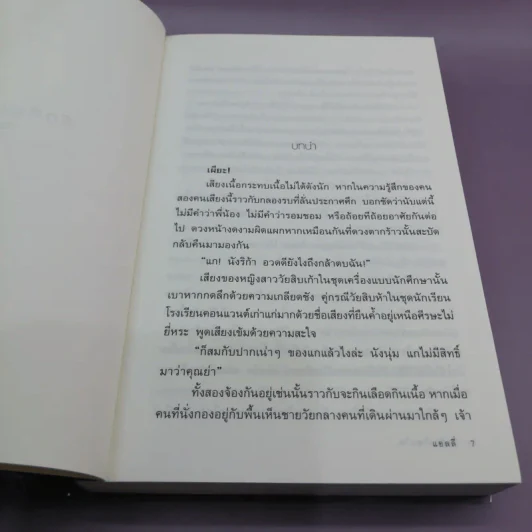 บทนำ
เผียะ!
เสียงเนื้อกระทบเนื้อไม่ได้ดังนัก หากในความรู้สึกของคน
สองคนเสียงนี้ราวกับกลองรบที่ลั่นประกาศศึก บอกชัดว่านับแต่นี้
ไม่มีคำว่าพี่น้อง ไม่มีคำว่ารอมชอม หรือถ้อยทีถ้อยอาศัยกันต่อ
ไป ดวงหน้างดงามผิดแผกหากเหมือนกันที่ดวงตากร้าวนั้นสะบัด
กลับคืนมามองกัน
“แก! นังริก้า อวดดียังไงถึงกล้าตบฉัน!”
เสียงของหญิงสาววัยสิบเก้าในชุดเครื่องแบบนักศึกษานั้น
เบาหากกดลึกด้วยความเกลียดชัง คู่กรณีวัยสิบห้าในชุดนักเรียน
โรงเรียนคอนแวนต์เก่าแก่มากด้วยชื่อเสียงที่ยืนค้ำอยู่เหนือศีรษะไม่
ยี่หระ พูดเสียงเข้มด้วยความสะใจ
“ก็สมกับปากเน่าๆ ของแกแล้วไงล่ะ นังนุ่ม แกไม่มีสิทธิ์
มาว่าคุณย่า”
ทั้งสองจ้องกันอยู่เช่นนั้นราวกับจะกินเลือดกินเนื้อ หากเมื่อ
คนที่นั่งกองอยู่กับพื้นเห็นชายวัยกลางคนที่เดินผ่านมาใกล้ๆ เจ้า
แชลลี่ 7